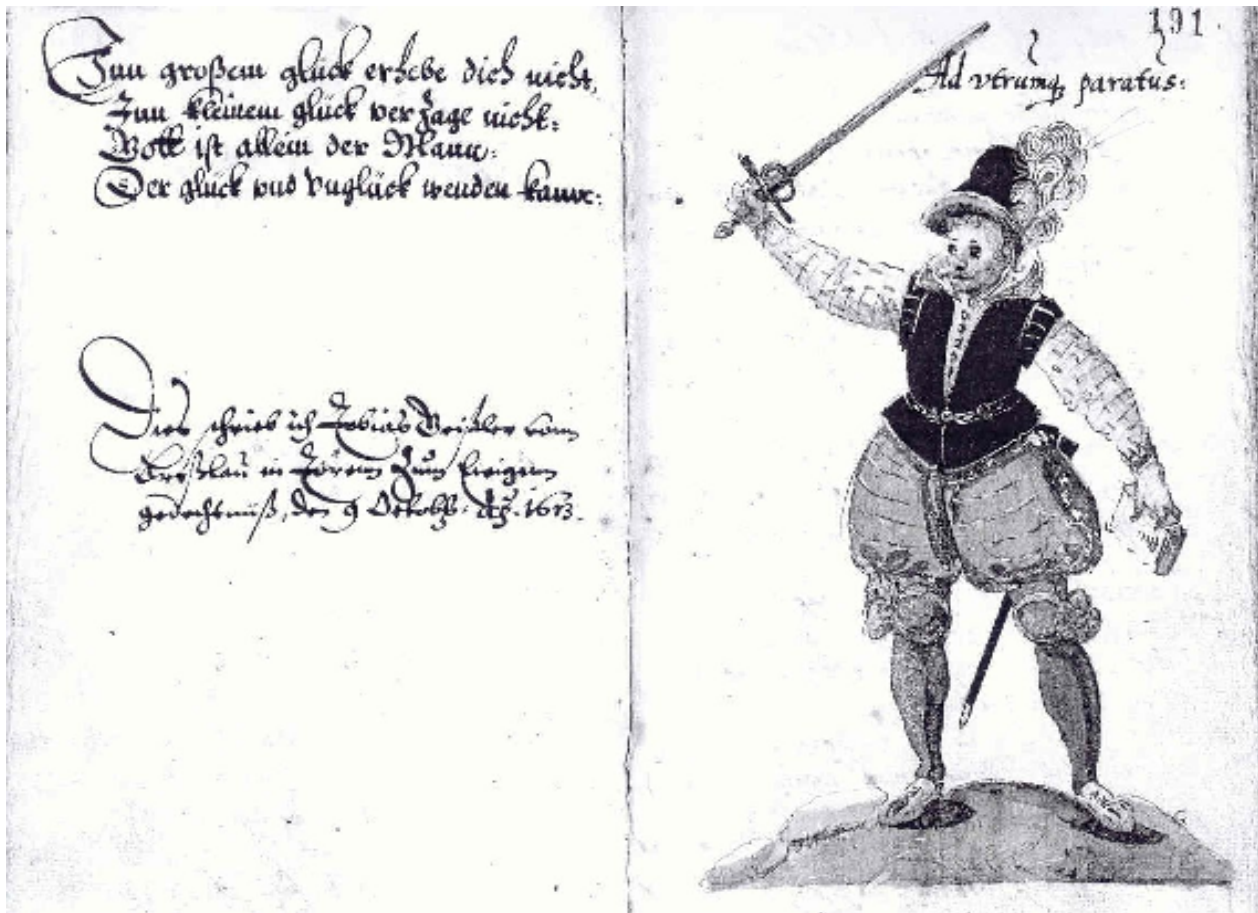 Inn großem glück erhebe dich nicht,
Inn kleinem glück verzage nicht:
Gott ist allein der Mann:
Der glück vnd vnglück wenden kann:
Dies schrieb ich Tobias von
Breßlau in Zum Ewigem
gedechtnüß, den 9 Octob: 1613.
191.
Ad vtrumq paratus: